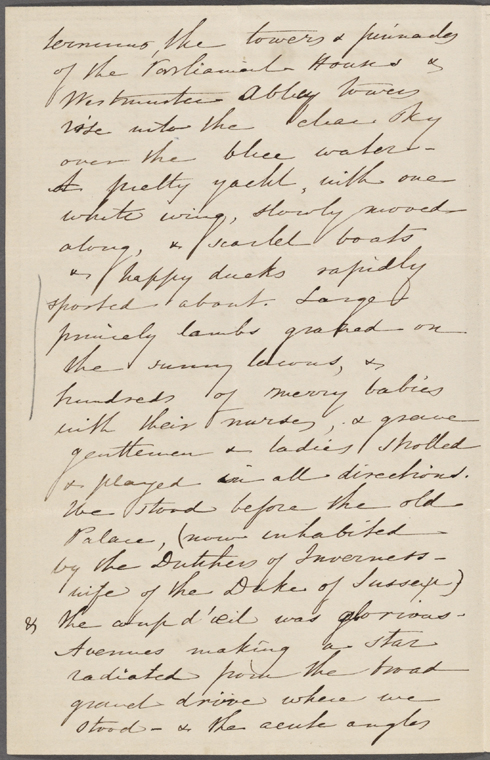 terminus, the towers & pinnacles
of the Parliament House &
Westminster Abbey towers
rise into the clear sky
over the blue water -
A pretty yacht, with one
white wing, slowly moved
along, & scarlet boats
& happy ducks rapidly
sported about. Large &
princely lambs grazed on
the sunny lawns, &
hundreds of merry babies
with their nurses, & grave
gentlemen & ladies strolled
& played in all directions.
We stood before the old
Palace, (now inhabited
by the Dutchess of Inverness -
wife of the Duke of Sussex)
& the coup d'œil was glorious -
Avenues making a star
radiated from the broad
gravel drive where we
stood - & the acute angles